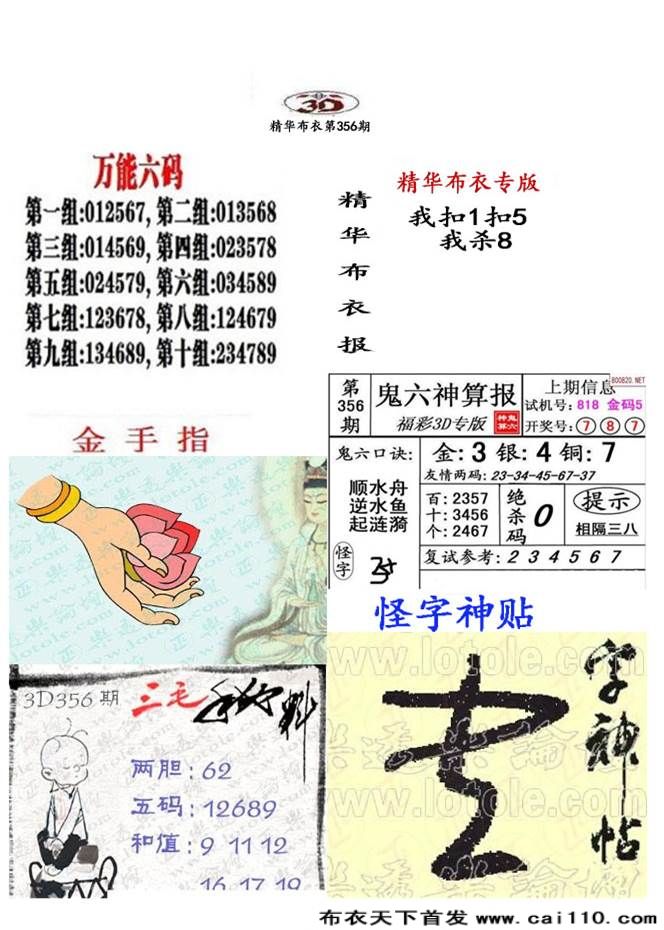 3D
精华布衣第356期
万能六码
第一组:012567, 第二组:013568
第三组:014569, 第四组:023578
第五组:024579, 第六组:034589
第七组:123678, 第八组:124679
第九组:134689, 第十组:234789
精华布衣报
精华布衣专版
我扣1扣5
我杀8
金手指
第356期
鬼六神算报
福彩3D专版
神鬼算六
上期信息
800820.NET
试机号: 818 金码5
开奖号: 7 8 7
鬼六口诀:
顺水舟
逆水鱼
起涟漪
怪字
金: 3 银: 4 铜: 7
友情两码: 23-34-45-67-37
百: 2357
十: 3456
个: 2467
绝杀码 0
提示
相隔三八
复试参考: 2 3 4 5 6 7
怪字神贴
www.lotole.com
字神帖
www.lotole.com
3D356期
三毛
两胆: 62
五码: 12689
和值: 9 11 12
16 17 19
布衣天下首发 www.cai110.com